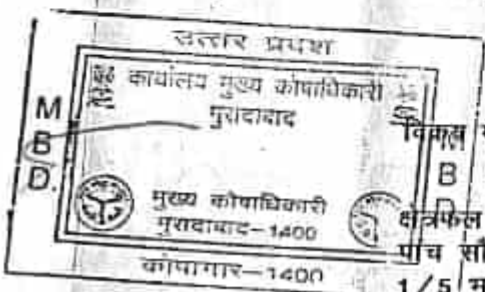 उत्तर प्रदेश
कार्यालय मुख्य कोषाधिकारी
मुरादाबाद
M
B
D.
मुख्य कोषाधिकारी
मुरादाबाद-1400
कोषागार-1400
विकास
B
D
क्षेत्रफल
पांच सौ
1/5